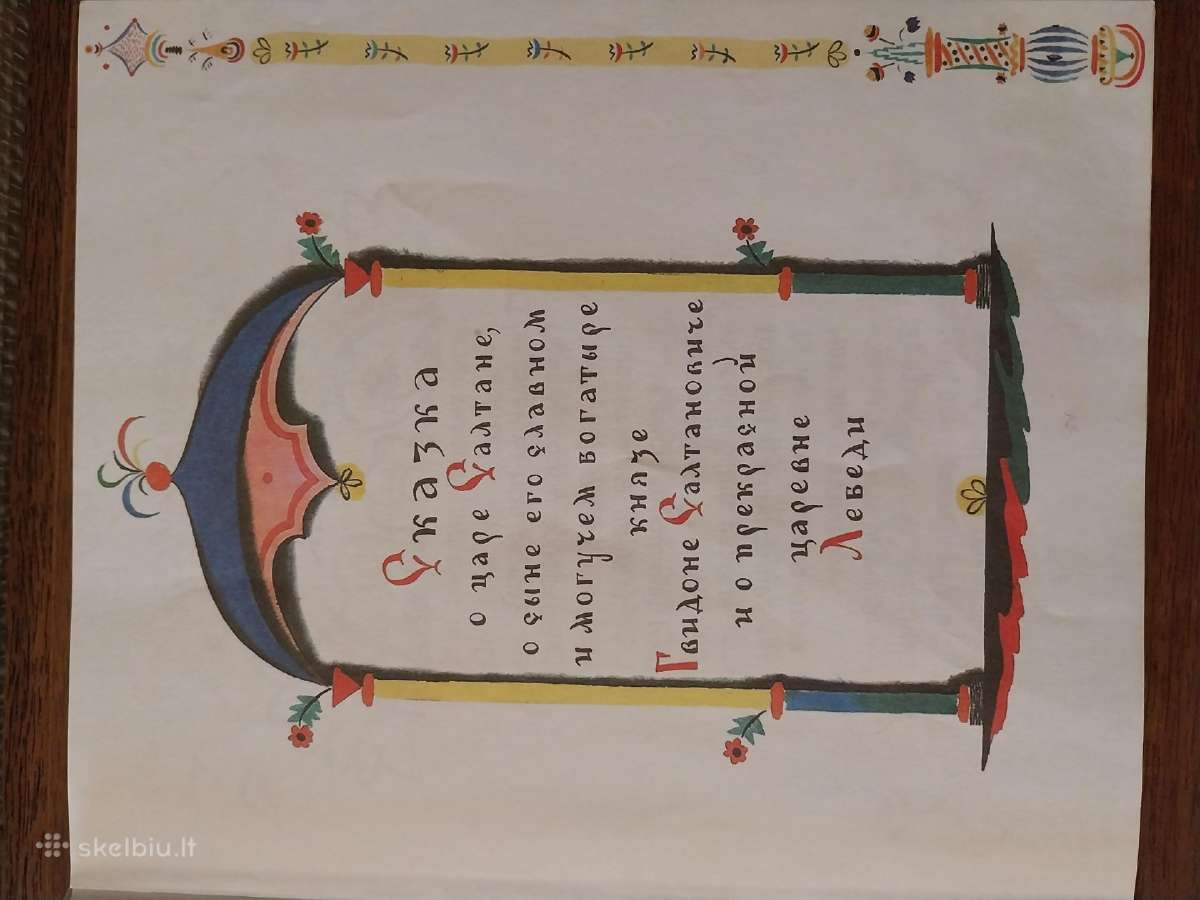 Сказка
о царе Салтане,
о сыне его славном
и могучем богатыре
князе
Гвидоне Салтановиче
и о прекрасной
царевне
Лебеди
skelbiu.lt